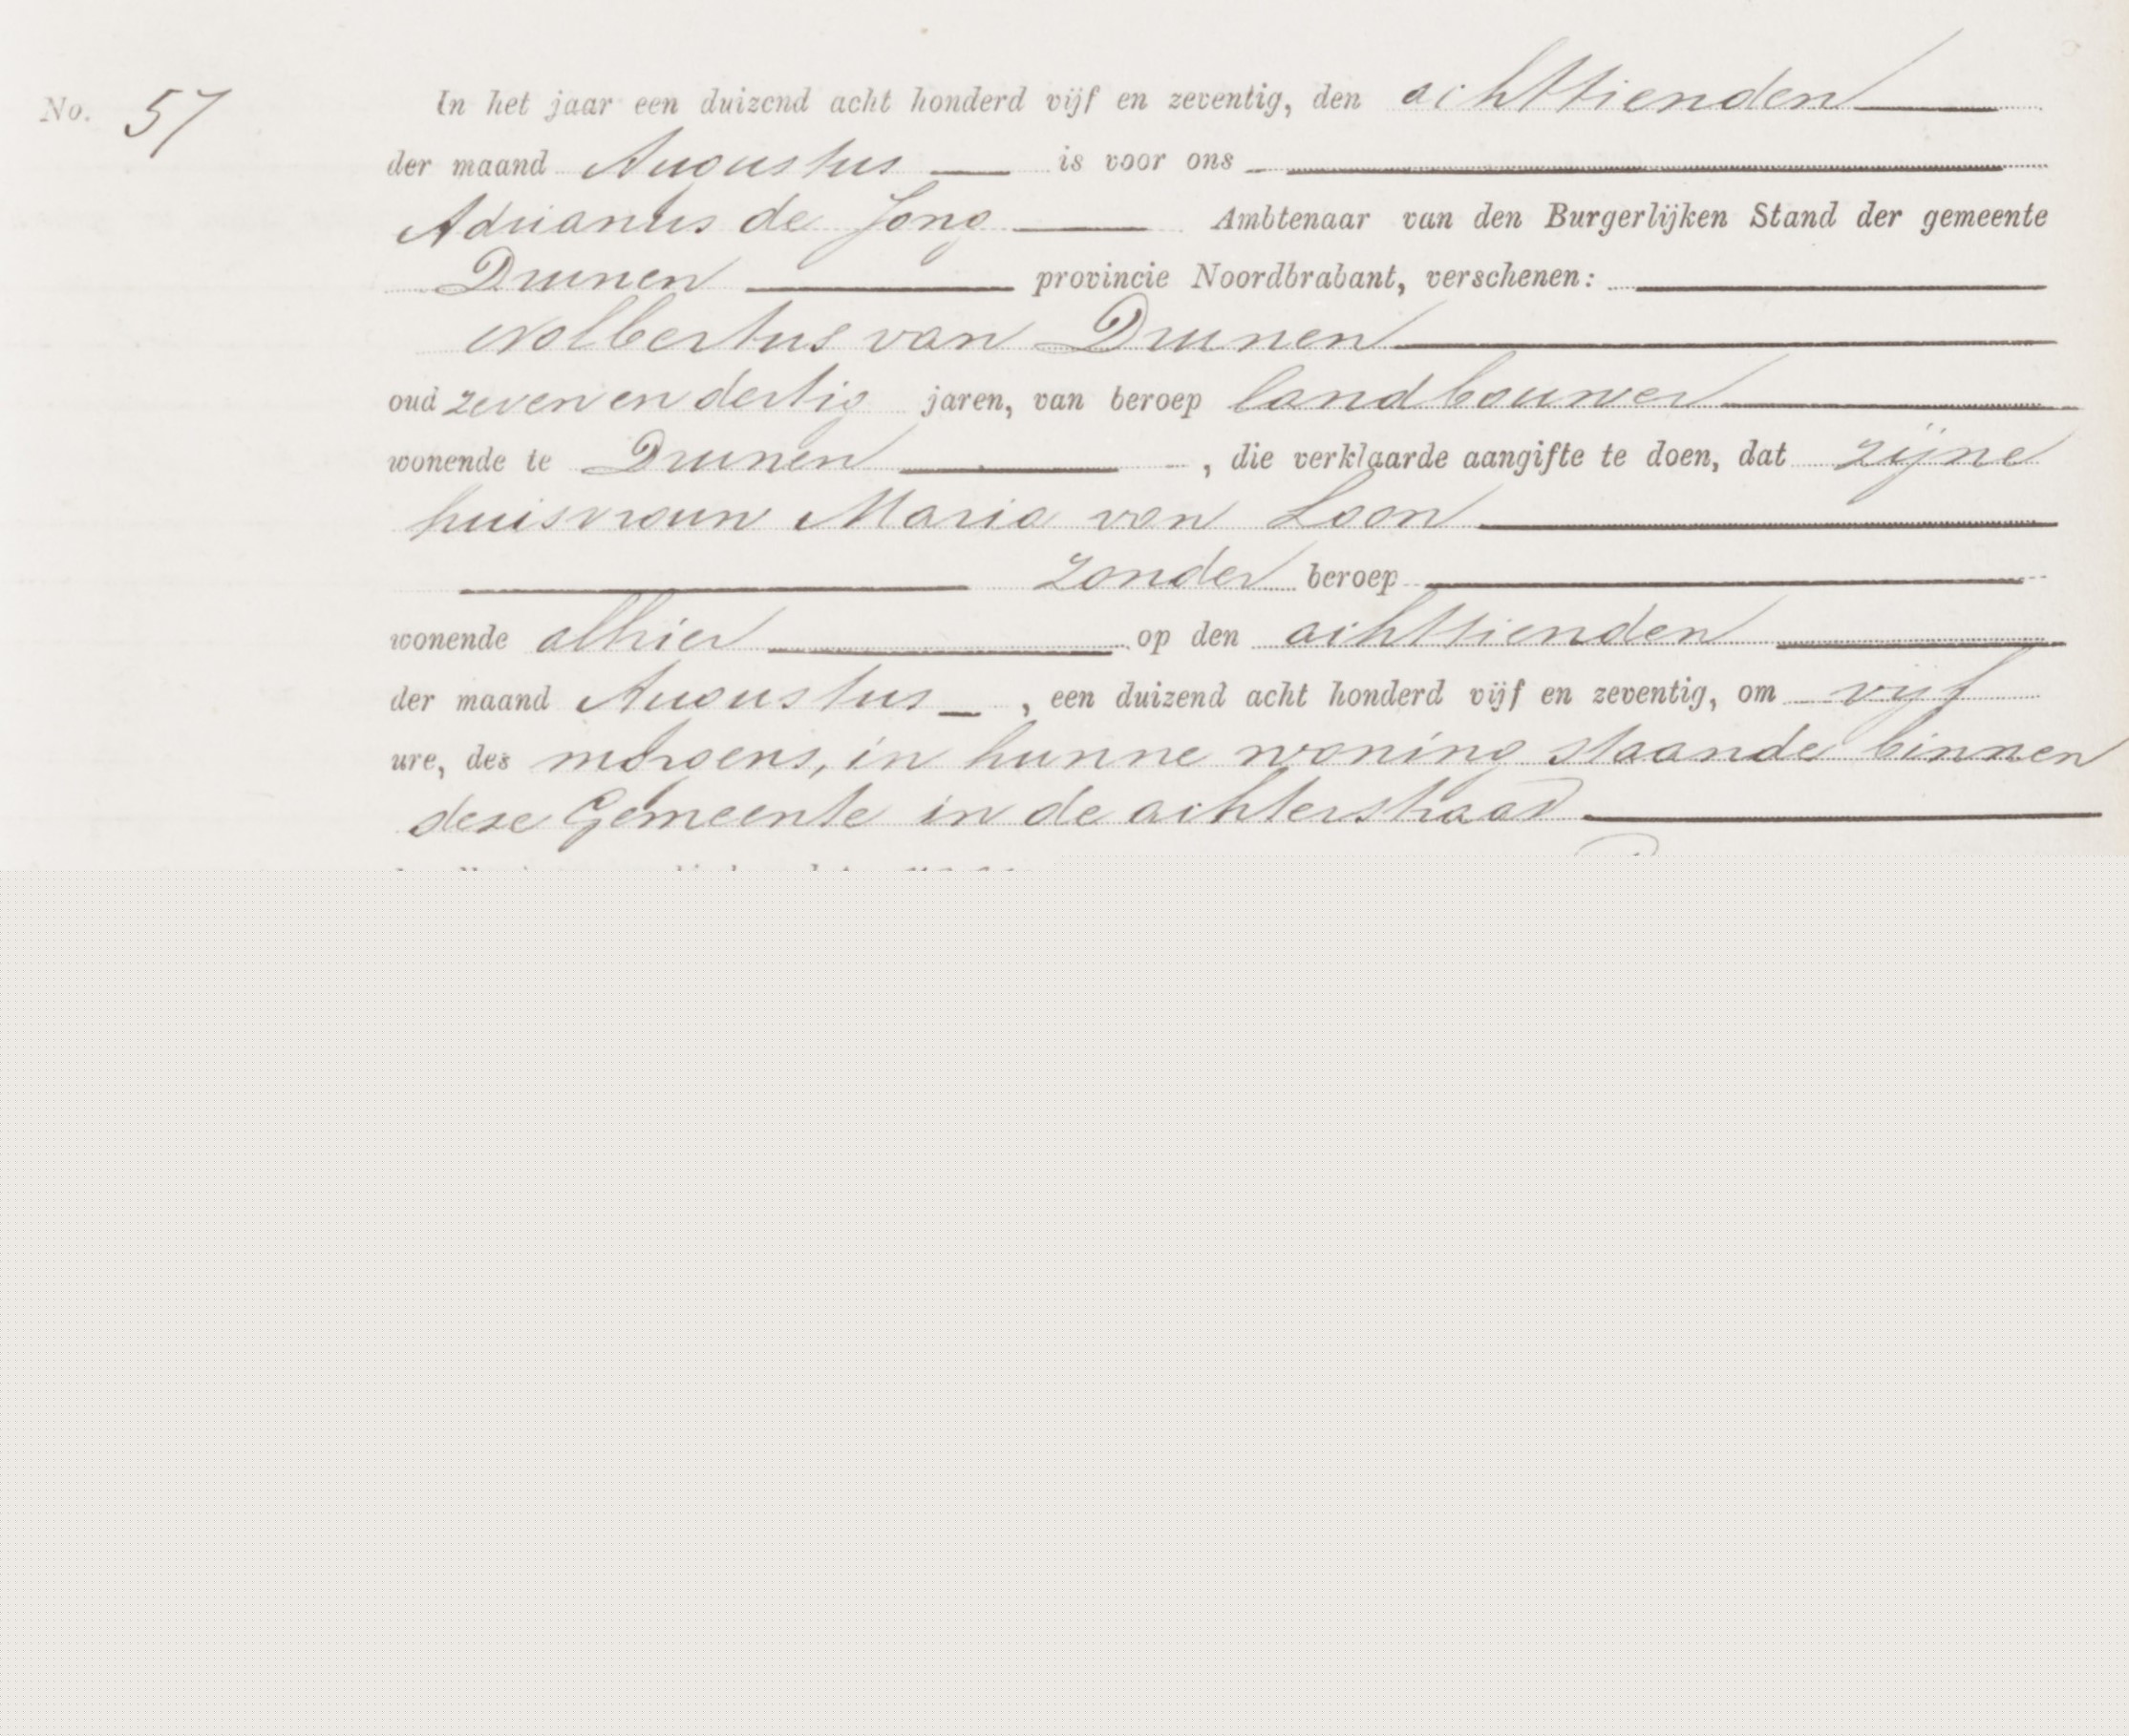 No. 57
In het jaar een duizend acht honderd vijf en zeventig, den achttienden
der maand Augustus is voor ons
Adrianus de Jong Ambtenaar van den Burgerlijken Stand der gemeente
Drunen provincie Noordbrabant, verschenen:
Nolbertus van Drunen
oud zeven en dertig jaren, van beroep landbouwer
wonende te Drunen, die verklaarde aangifte te doen, dat zijne
huisvrouw Maria van Loon
zonder beroep
wonende alhier op den achttienden
der maand Augustus, een duizend acht honderd vijf en zeventig, om vijf
ure, des morgens, in hunne woning staande binnen
deze Gemeente in de achterstraat